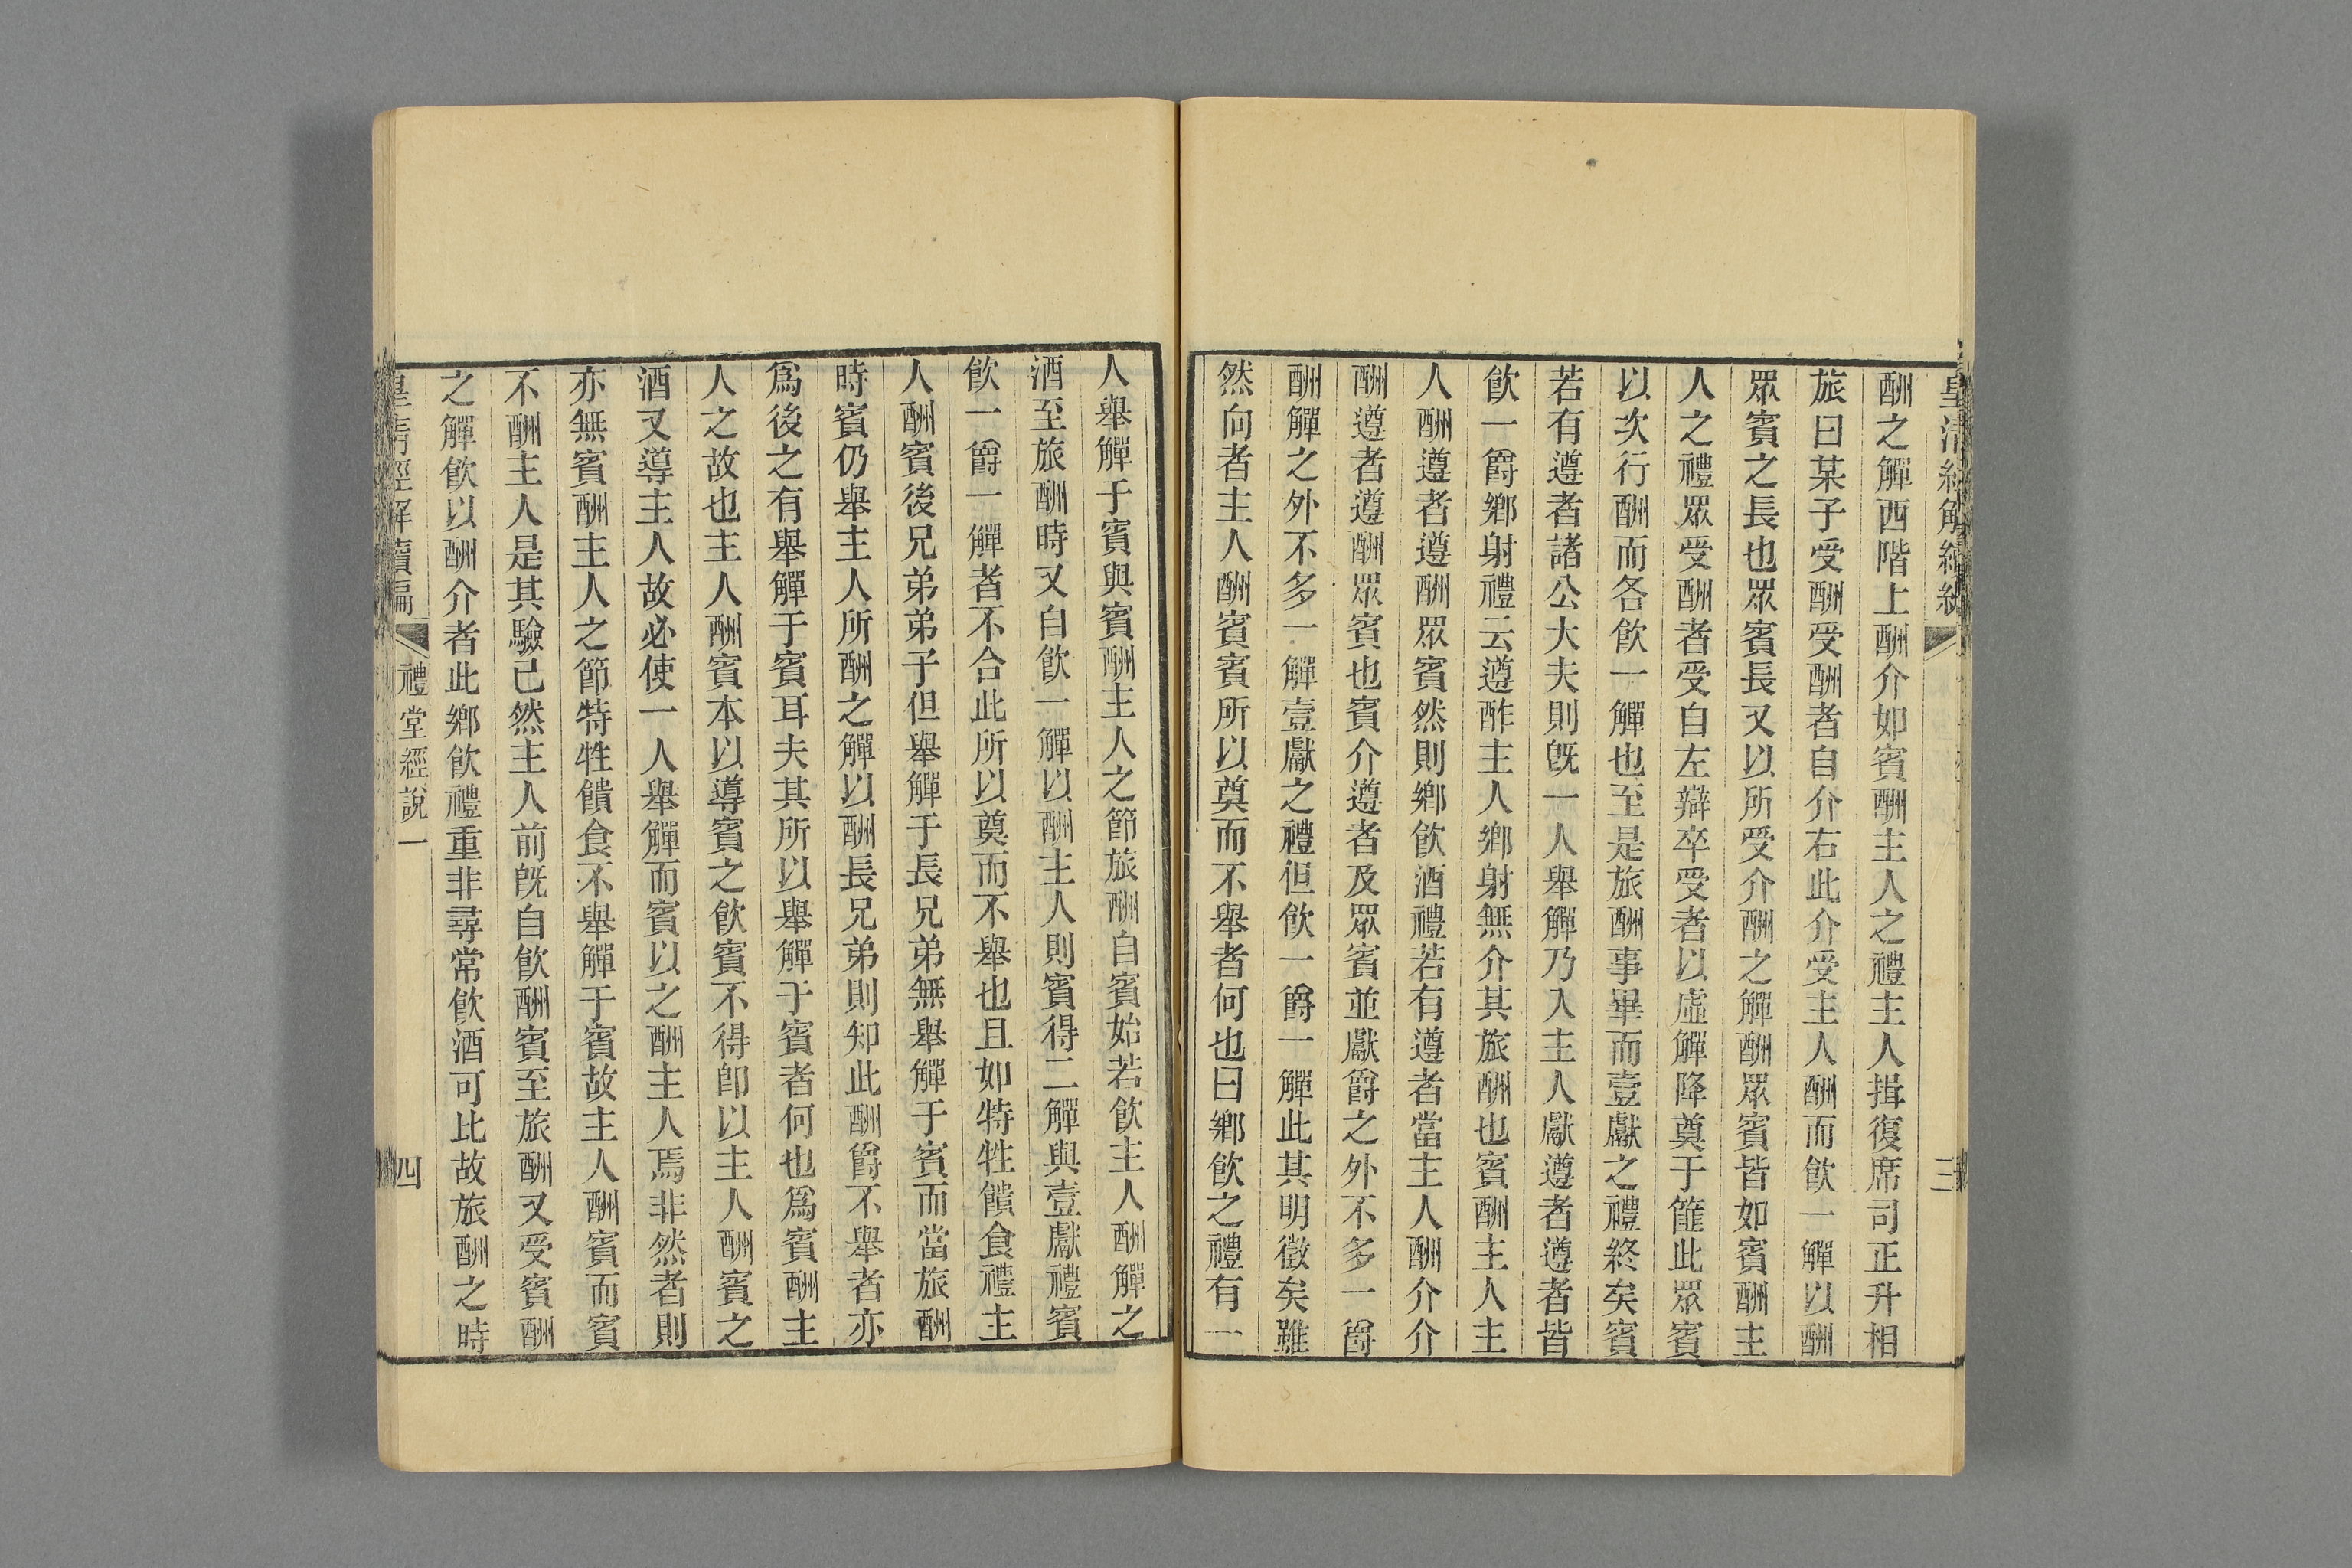 皇清經解續編
三
酬之觶西階上酬介如賓酬主人之禮主人揖復席司正升相
旅曰某子受酬受酬者自介右此介受主人酬而飲一觶以酬
眾賓之長也眾賓長又以所受介酬之觶酬眾賓皆如賓酬主
人之禮眾受酬者受自左辯卒受者以虛觶降奠于篚此眾賓
以次行酬而各飲一觶也至是旅酬事畢而壹獻之禮終矣賓
若有遵者諸公大夫則旣一人舉觶乃入主人獻遵者遵者皆
飲一爵鄉射禮云遵酢主人鄉射無介其旅酬也賓酬主人主
人酬遵者遵酬眾賓然則鄉飲酒禮若有遵者當主人酬介介
酬遵者遵酬眾賓也賓介遵者及眾賓並獻爵之外不多一爵
酬觶之外不多一觶壹獻之禮但飲一爵一觶此其明徵矣雖
然向者主人酬賓賓所以奠而不舉者何也曰鄉飲之禮有一
人舉觶于賓與賓酬主人之節旅酬自賓始若飲主人酬觶之
酒至旅酬時又自飲一觶以酬主人則賓得二觶與壹獻禮賓
飲一爵一觶者不合此所以奠而不舉也且如特牲饋食禮主
人酬賓後兄弟弟子但舉觶于長兄弟無舉觶于賓而當旅酬
時賓仍舉主人所酬之觶以酬長兄弟則知此酬爵不舉者亦
爲後之有舉觶于賓耳夫其所以舉觶于賓者何也爲賓酬主
人之故也主人酬賓本以導賓之飲賓不得卽以主人酬賓之
酒又導主人故必使一人舉觶而賓以之酬主人焉非然者則
亦無賓酬主人之節特牲饋食不舉觶于賓故主人酬賓而賓
不酬主人是其驗已然主人前旣自飲酬賓至旅酬又受賓酬
之觶飲以酬介者此鄉飲禮重非尋常飲酒可比故旅酬之時
皇清經解續編
禮堂經說一
四